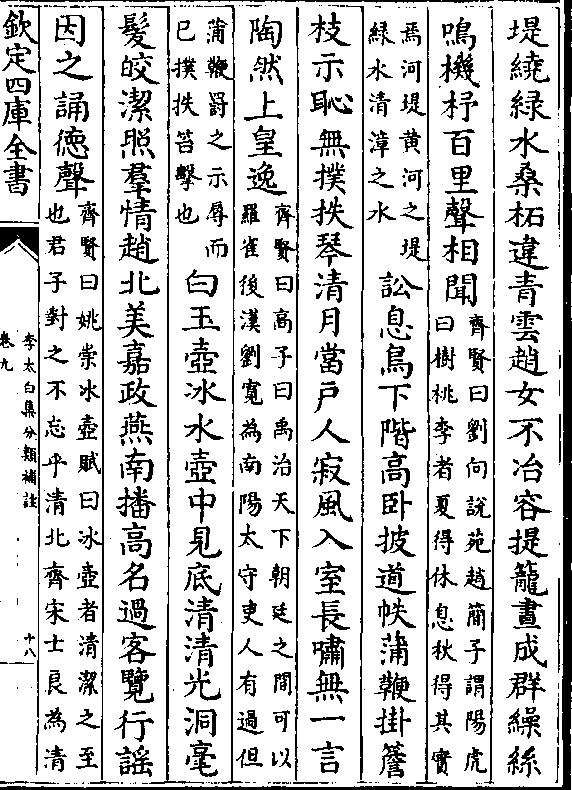 堤繞緑水桑柘連青雲趙女不冶容提籠晝成群繰絲
鳴機杼百里聲相聞
齊賢曰劉向説苑趙簡子謂陽虎
曰樹桃李者夏得休息秋得其實
焉河堤黄河之堤
緑水清漳之水
訟息鳥下階高卧披道帙蒲鞭掛簷
枝示恥無撲抶琴清月當戸人寂風入室長嘯無一言
陶然上皇逸
齊賢曰高子曰禹治天下朝廷之間可以
羅雀後漢劉寛為南陽太守吏人有過但
蒲鞭罰之示辱而
已撲抶笞擊也
白玉壺冰水壺中見底清清光洞毫
髮皎潔照羣情趙北美嘉政燕南播高名過客覽行謡
因之誦德聲
齊賢曰姚崇冰壺賦曰冰壺者清潔之至
也君子對之不忘乎清北齊宋士良為清
欽定四庫全書
李太白集分類補註
卷九
十八